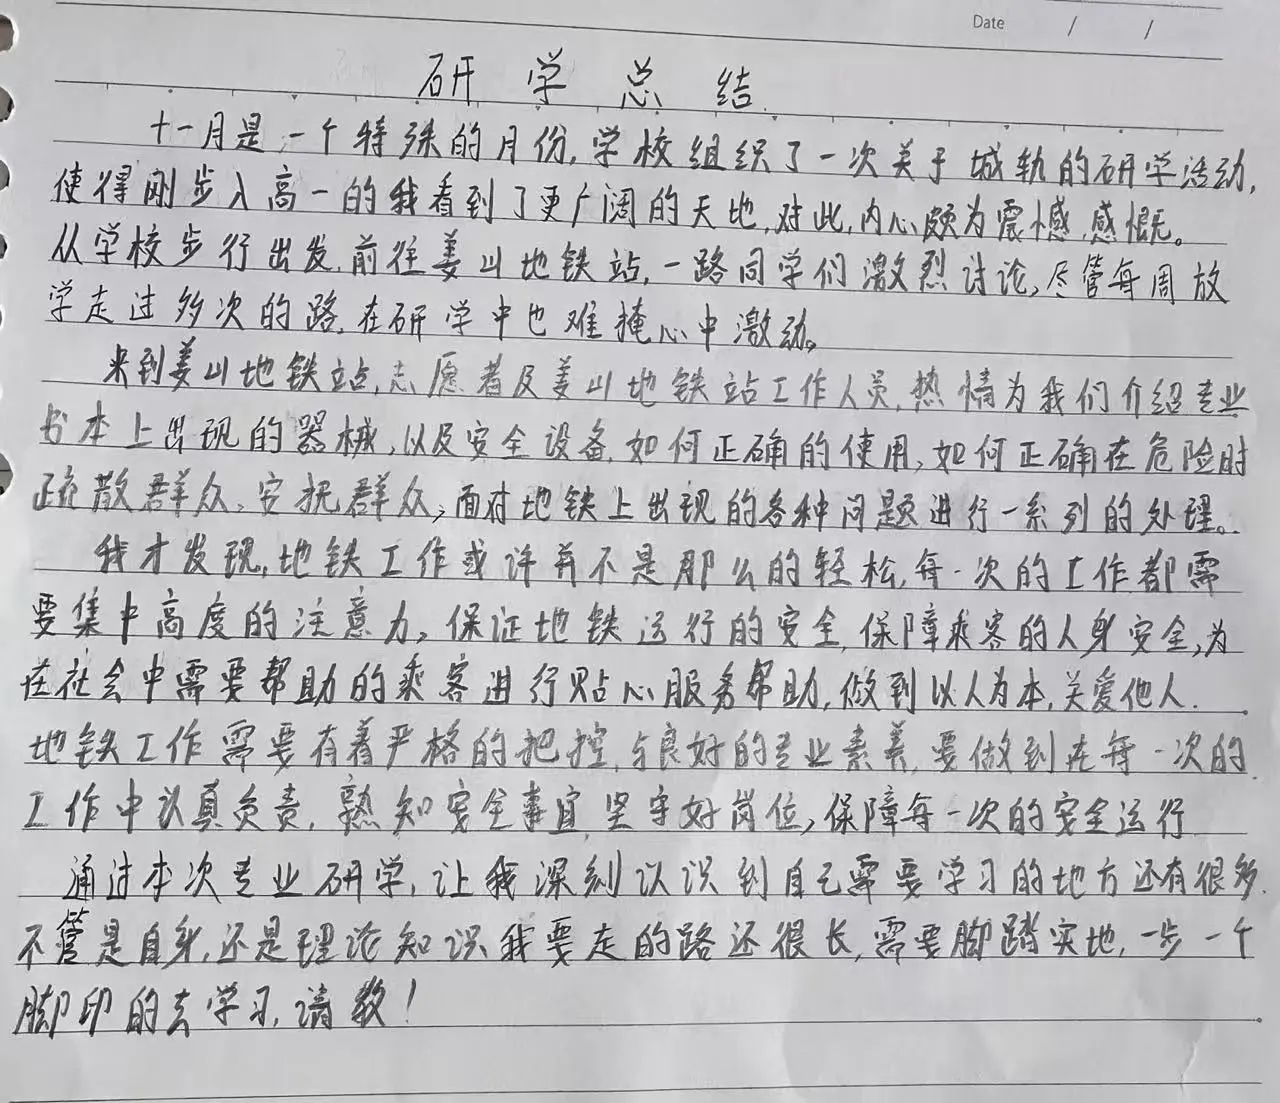 Date / /
研学总结
十一月是一个特殊的月份,学校组织了一次关于城轨的研学活动,
使得刚步入高一的我看到了更广阔的天地,对此,内心颇为震憾,感慨。
从学校步行出发,前往姜山地铁站,一路同学们激烈讨论,尽管每周放
学走过多次的路,在研学中也难掩心中激动。
来到姜山地铁站,志愿者及姜山地铁站工作人员,热情为我们介绍专业
书本上出现的器械,以及安全设备,如何正确的使用,如何正确在危险时
疏散群众,安抚群众,面对地铁上出现的各种问题进行一系列的处理。
我才发现,地铁工作或许并不是那么的轻松,每一次的工作都需
要集中高度的注意力,保证地铁运行的安全,保障乘客的人身安全,为
在社会中需要帮助的乘客进行贴心服务帮助,做到以人为本,关爱他人.
地铁工作需要有着严格的把控,与良好的专业素养,要做到在每一次的
工作中认真负责,熟知安全事宜,坚守好岗位,保障每一次的安全运行
通过本次专业研学,让我深刻认识到自己需要学习的地方还有很多,
不管是自身,还是理论知识我要走的路还很长,需要脚踏实地,一步一个
脚印的去学习,请教!